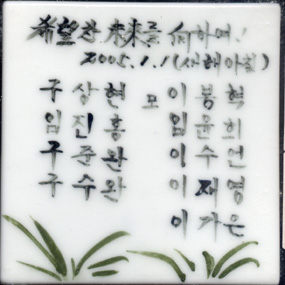 希望찬 未來를 向하여!
2005.1.1(새해아침)
구상현 모 이봉혁
임진홍 임윤희
구준완 이수언
구수완 이재영
이가은